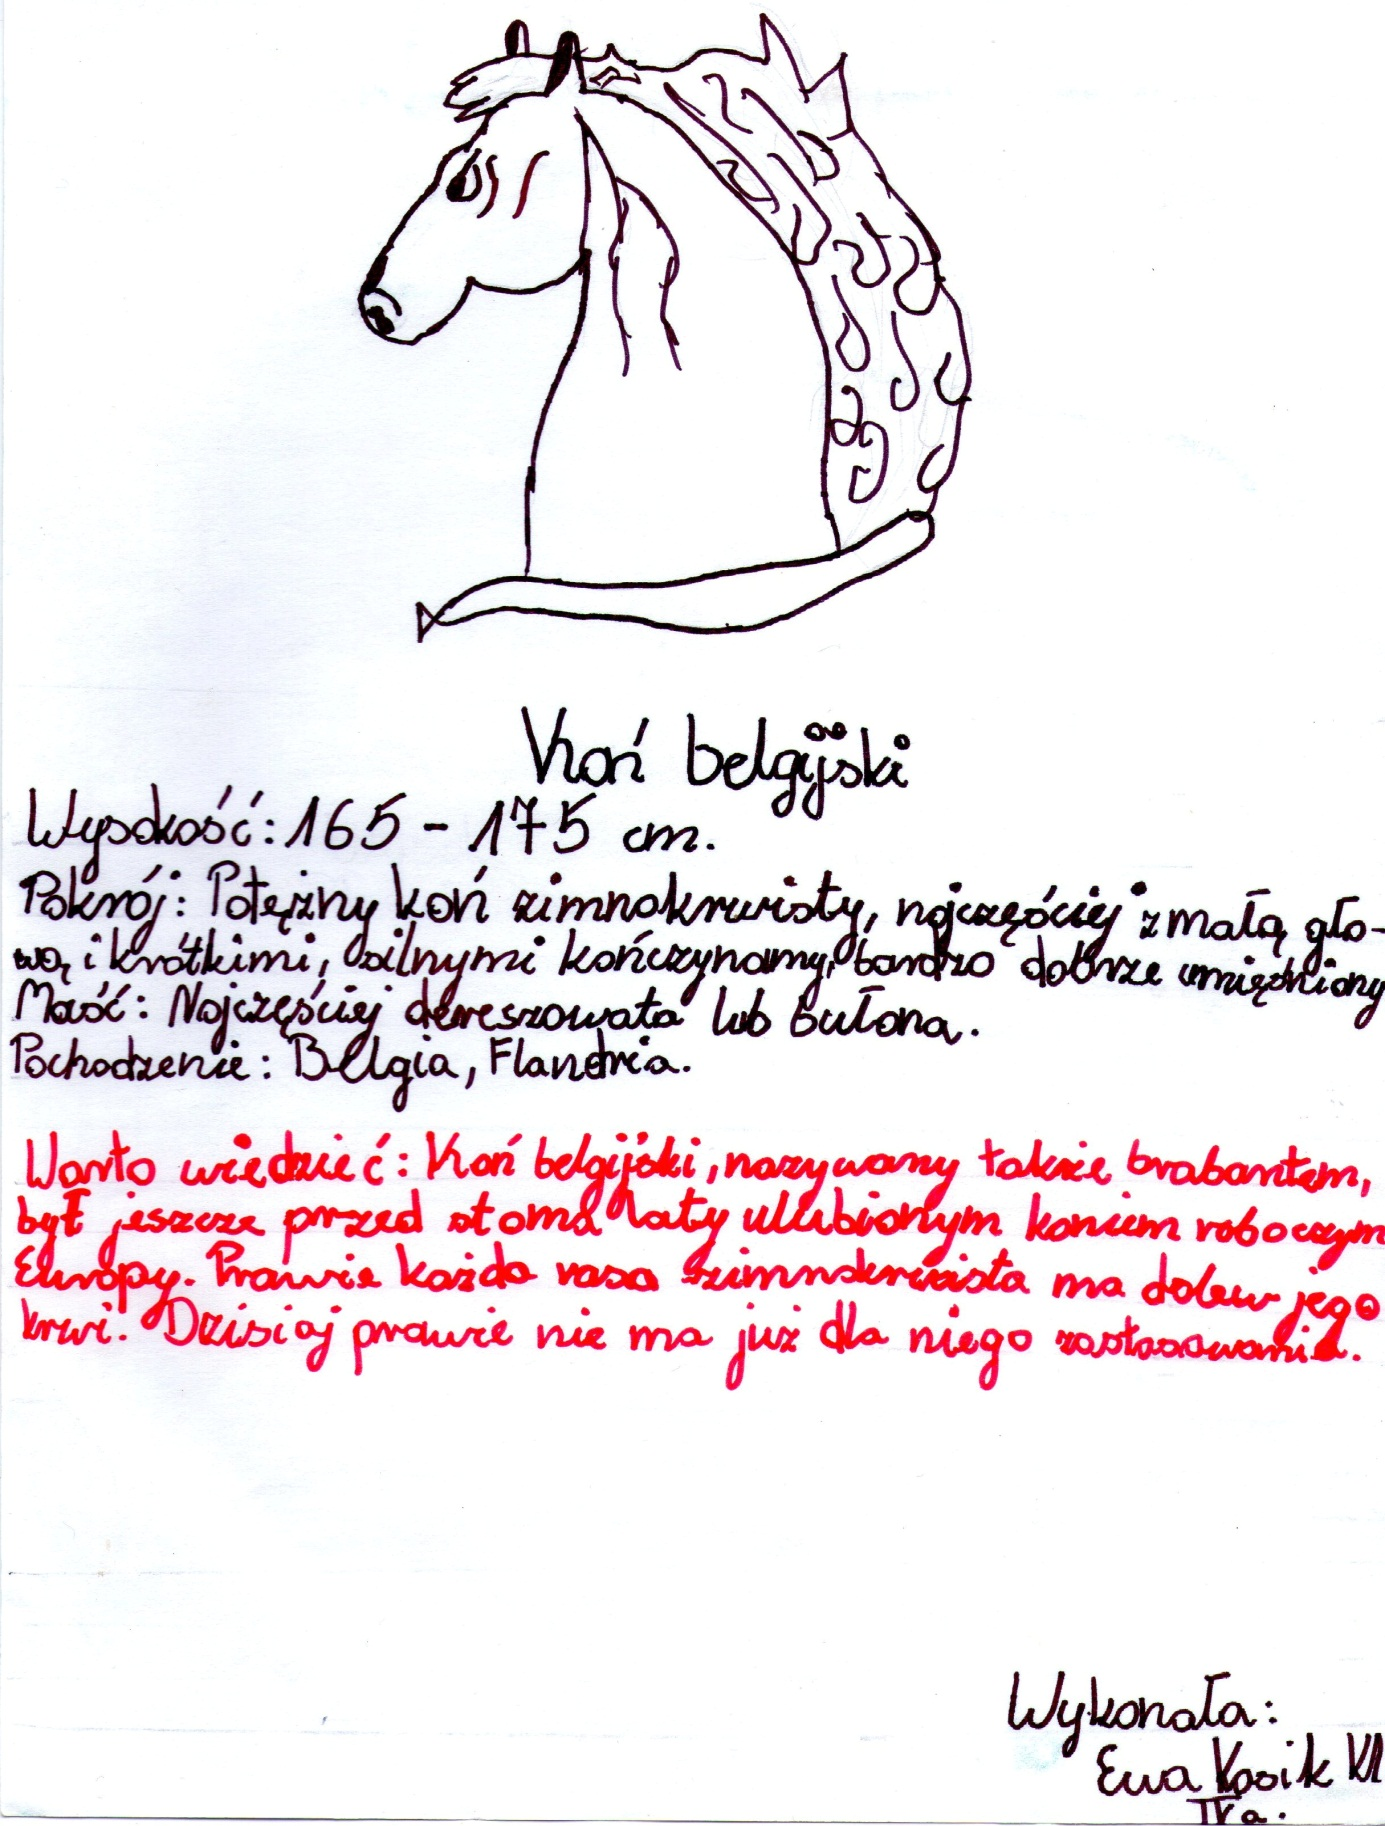 Koń belgijski
Wysokość: 165 - 175 cm.
Pokrój: Potężny koń zimnokrwisty, najczęściej z małą gło-
wą i krótkimi, silnymi kończynamy, bardzo dobrze umięśniony
Maść: Najczęściej dereszowata lub bułana.
Pochodzenie: Belgia, Flandria.
Warto wiedzieć: Koń belgijski, nazywany także brabantem,
był jeszcze przed stoma laty ulubionym koniem roboczym
Europy. Prawie każda rasa zimnokrwista ma dolew jego
krwi. Dzisiaj prawie nie ma już dla niego zastosowania.
Wykonała:
Ewa Kosik Kl
IV a.